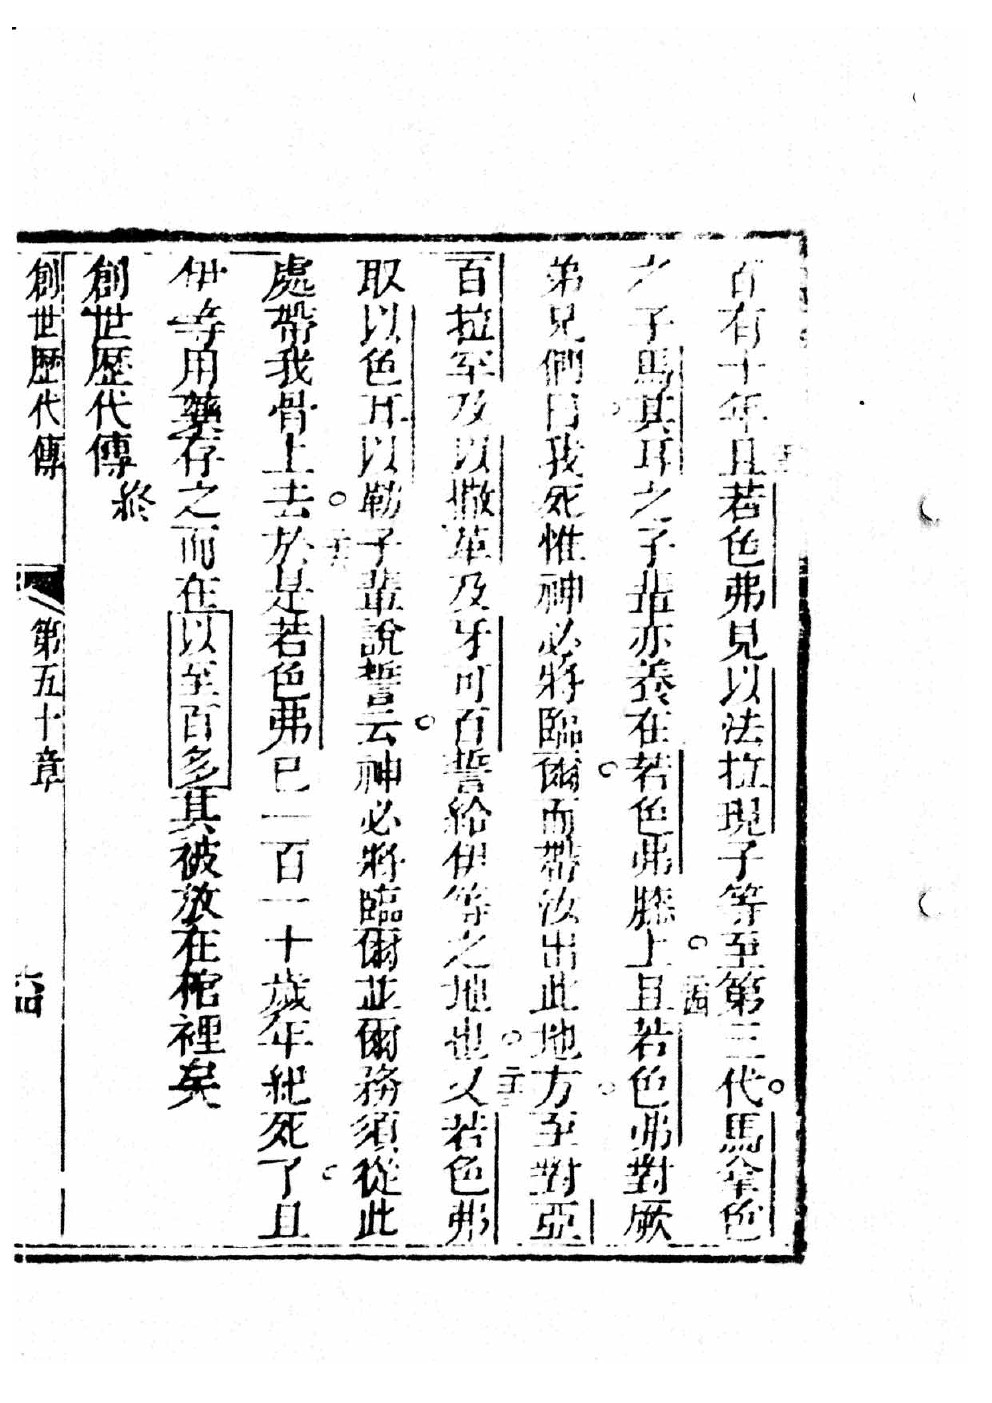 百有十年且若色弗見以法拉現子等至第三代。馬拿色
之子馬其耳之子輩亦養在若色弗膝上。且若色弗對厥
弟兄們曰我死惟神必將臨爾。而帶汝出此地方。至對亞
百拉罕及以撒革及牙可百誓給伊等之地也。又若色弗
取以色耳以勒子輩說誓云。神必將臨爾並爾務須從此
處帶我骨上去。於是若色弗已一百一十歲年紀死了。且
伊等用藥存之而在以至百多其被放在棺裡矣
創世歷代傳 終
創世歷代傳 第五十章